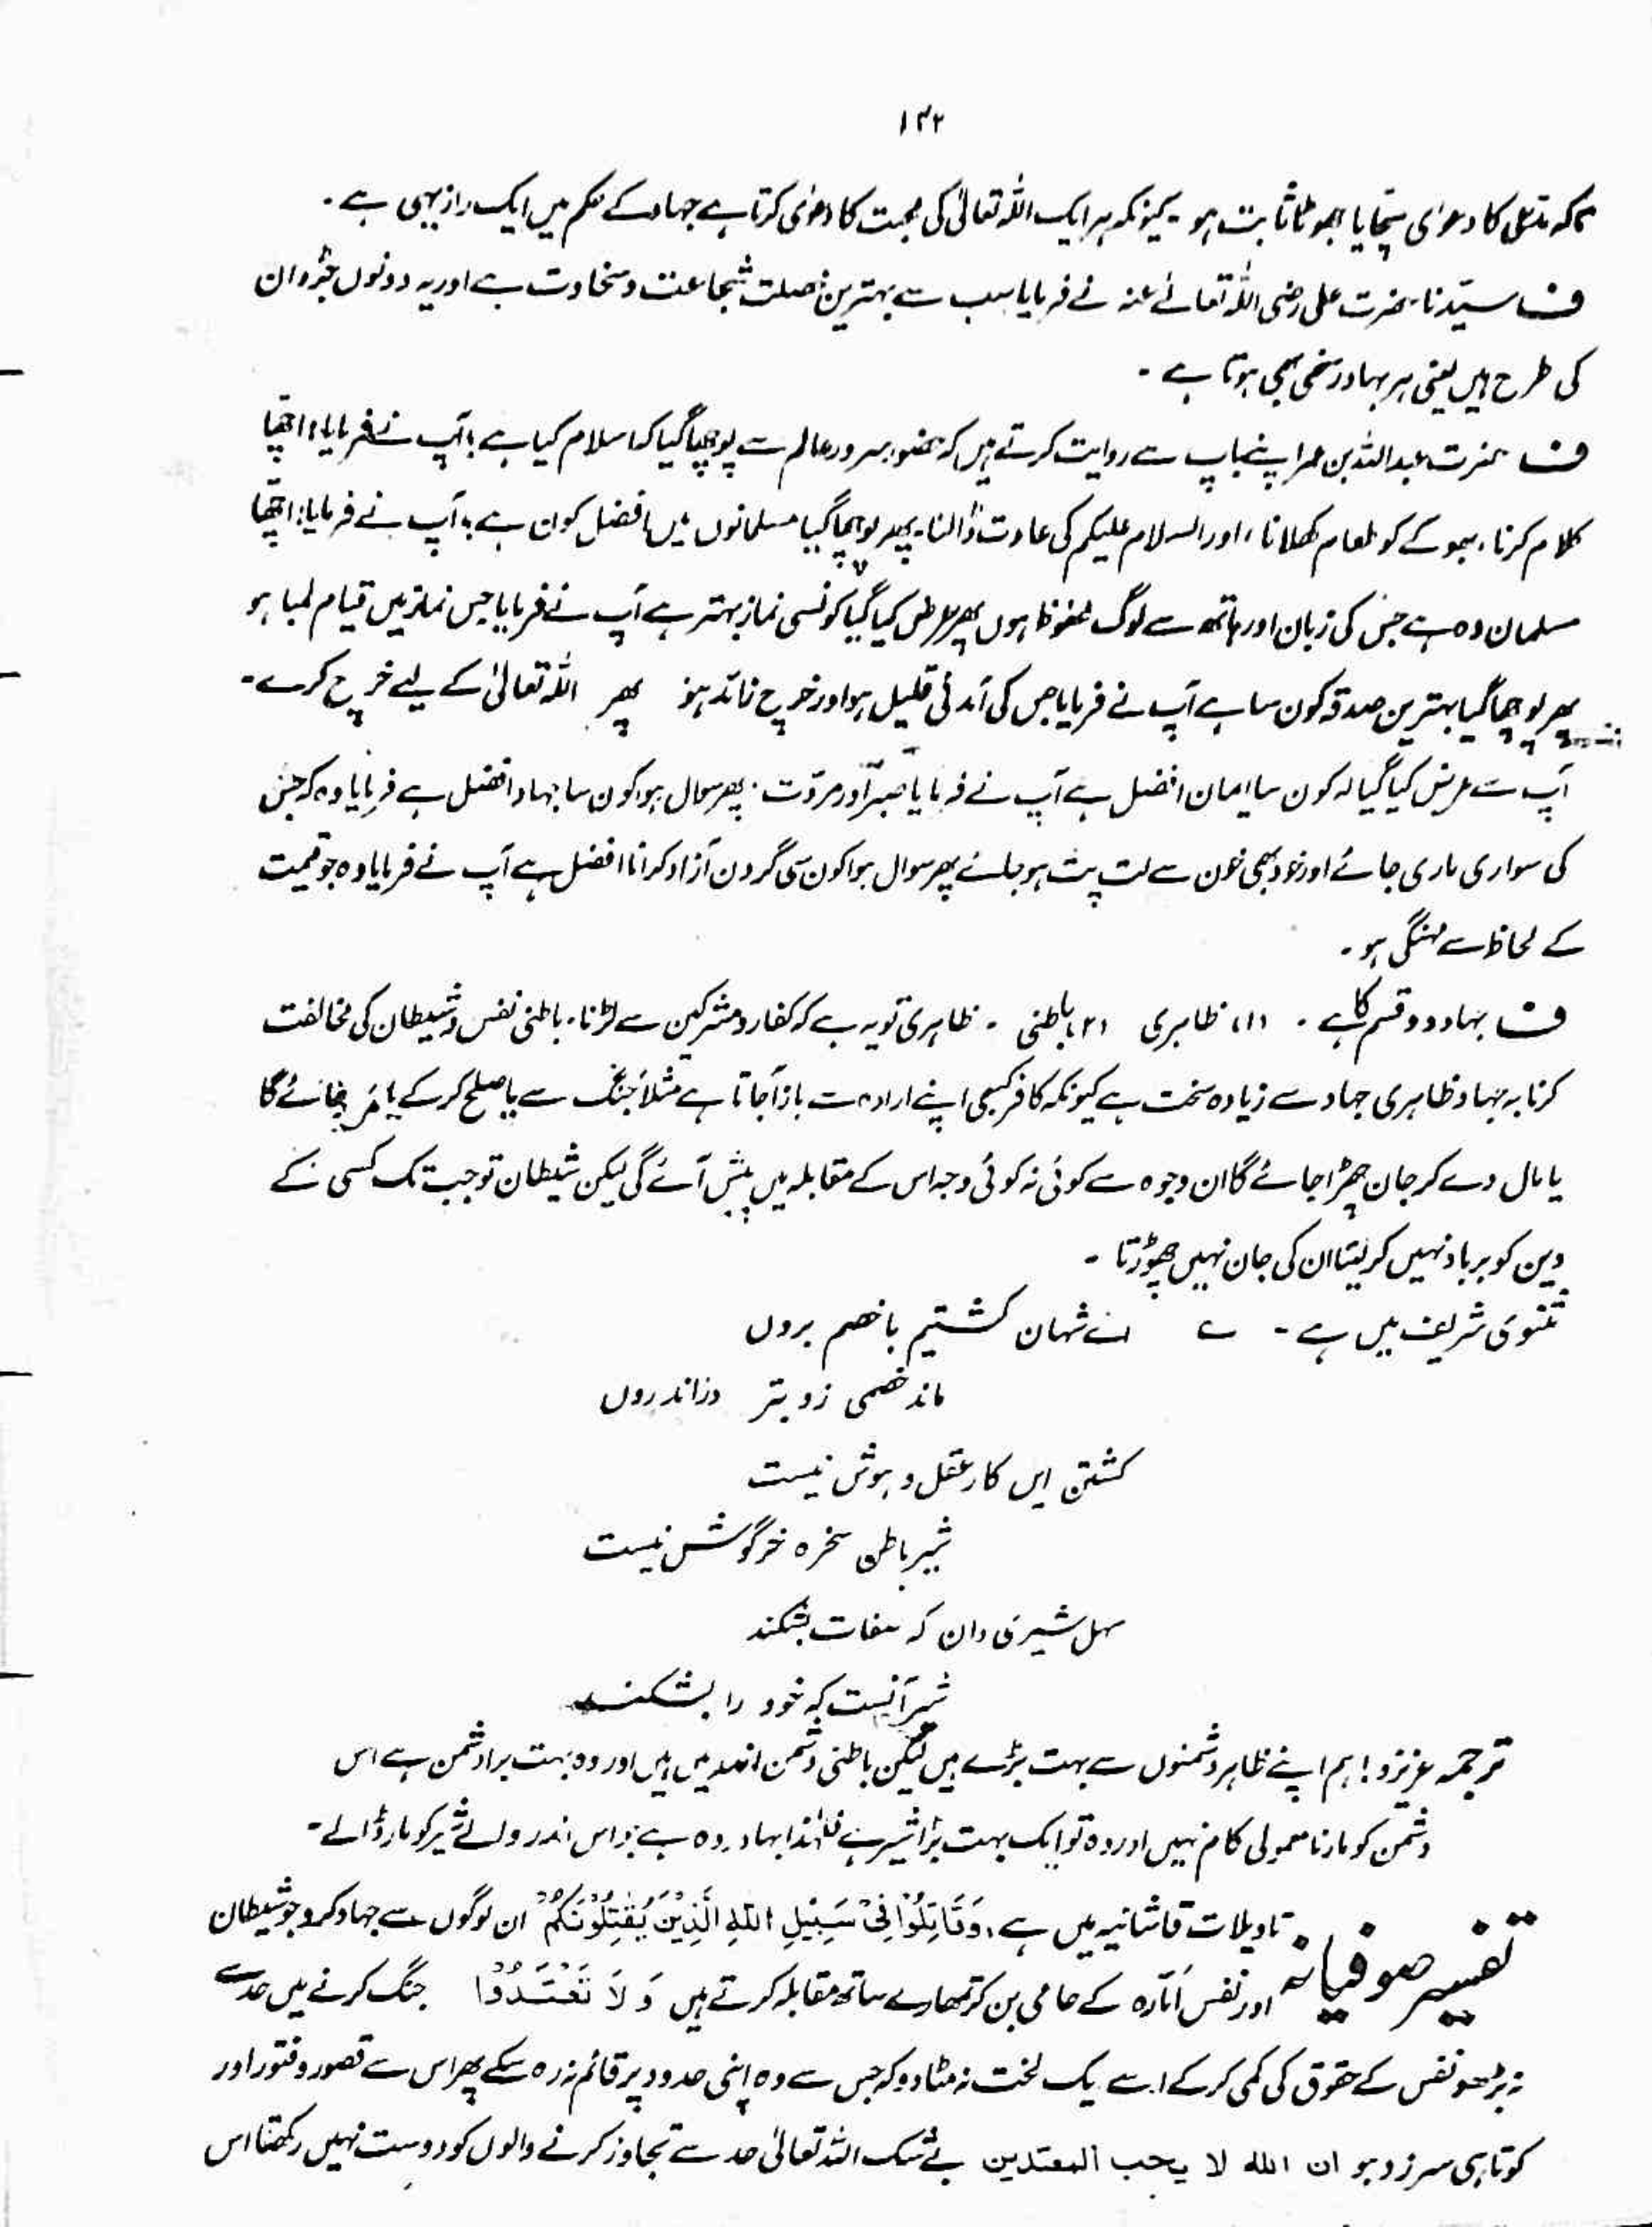 ۱۳۲
تاکہ مدعی کا دعوٰی سچا یا جھوٹا ثابت ہو۔ کیونکہ ہر ایک اللہ تعالیٰ کی محبت کا دعوٰی کرتا ہے جہاد کے حکم میں ایک راز یہی ہے۔
ف سیّدنا حضرت علی رضی اللہ تعالےٰ عنہ نے فرمایا سب سے بہترین خصلت شجاعت و سخاوت ہے اور یہ دونوں جڑواں
کی طرح ہیں یعنی ہر بہادر سخی بھی ہوتا ہے۔
ف حضرت عبداللہ بن عمر اپنے باپ سے روایت کرتے ہیں کہ حضور سرور عالم سے پوچھا گیا کہ اسلام کیا ہے؟ آپ نے فرمایا: اچھا
کلام کرنا، بھوکے کو طعام کھلانا، اور السلام علیکم کی عادت ڈالنا۔ پھر پوچھا گیا مسلمانوں میں افضل کون ہے؟ آپ نے فرمایا: اچھا
مسلمان وہ ہے جس کی زبان اور ہاتھ سے لوگ محفوظ ہوں پھر عرض کیا گیا کونسی نماز بہتر ہے آپ نے فرمایا جس نماز میں قیام لمبا ہو
پھر پوچھا گیا بہترین صدقہ کون سا ہے آپ نے فرمایا جس کی آمدنی قلیل ہو اور خرچ زائد ہو پھر اللہ تعالیٰ کے لیے خرچ کرے۔
آپ سے عرض کیا گیا کہ کون سا ایمان افضل ہے آپ نے فرمایا صبر اور مروّت۔ پھر سوال ہوا کون سا جہاد افضل ہے فرمایا وہ کہ جس
کی سواری ماری جائے اور خود بھی خون سے لت پت ہو جائے پھر سوال ہوا کون سی گردن آزاد کرانا افضل ہے آپ نے فرمایا وہ جو قیمت
کے لحاظ سے مہنگی ہو۔
ف جہاد دو قسم کا ہے۔ (۱) ظاہری (۲) باطنی۔ ظاہری تو یہ ہے کہ کفار و مشرکین سے لڑنا۔ باطنی نفس و شیطان کی مخالفت
کرنا یہ جہاد ظاہری جہاد سے زیادہ سخت ہے کیونکہ کافر کبھی اپنے ارادہ سے باز آجاتا ہے مثلاً جنگ سے یا صلح کر کے یا مر جائے گا
یا مال دے کر جان چھڑا جائے گا ان وجوہ سے کوئی نہ کوئی وجہ اس کے مقابلہ میں پیش آئے گی لیکن شیطان تو جب تک کسی کے
دین کو برباد نہیں کر لیتا ان کی جان نہیں چھوڑتا۔
مثنوی شریف میں ہے۔ ؎ اے شہان کشتیم با خصم بروں
ماند خصمی زو بتر در اندروں
کشتن ایں کار عقل و ہوش نیست
شیر باطن سخرہ خرگوش نیست
سہل شیری دان کہ صفات بشکند
شیر آنست کہ خود را بشکند
ترجمہ عزیزو! ہم اپنے ظاہر دشمنوں سے بہت بڑے ہیں لیکن باطنی دشمن اندر میں ہیں اور وہ بہت برا دشمن ہے اس
دشمن کو مارنا معمولی کام نہیں اور وہ تو ایک بہت بڑا شیر ہے فلہٰذا بہادر وہ ہے جو اس اندر والے شیر کو مار ڈالے۔
تفسیر صوفیانہ تاویلات قاشانیہ میں ہے، وَقَاتِلُوْا فِیْ سَبِیْلِ اللّٰهِ الَّذِیْنَ یُقَاتِلُوْنَکُمْ ان لوگوں سے جہاد کرو جو شیطان
اور نفس اَمّارہ کے حامی بن کر تمہارے ساتھ مقابلہ کرتے ہیں وَ لَا تَعْتَدُوْا جنگ کرنے میں حد سے
نہ بڑھو نفس کے حقوق کی کمی کر کے اسے یک لخت نہ مٹا دو کہ جس سے وہ اپنی حدود پر قائم نہ رہ سکے پھر اس سے قصور و فتور اور
کوتاہی سرزد ہو ان اللہ لا یحب المعتدین بے شک اللہ تعالیٰ حد سے تجاوز کرنے والوں کو دوست نہیں رکھتا اس